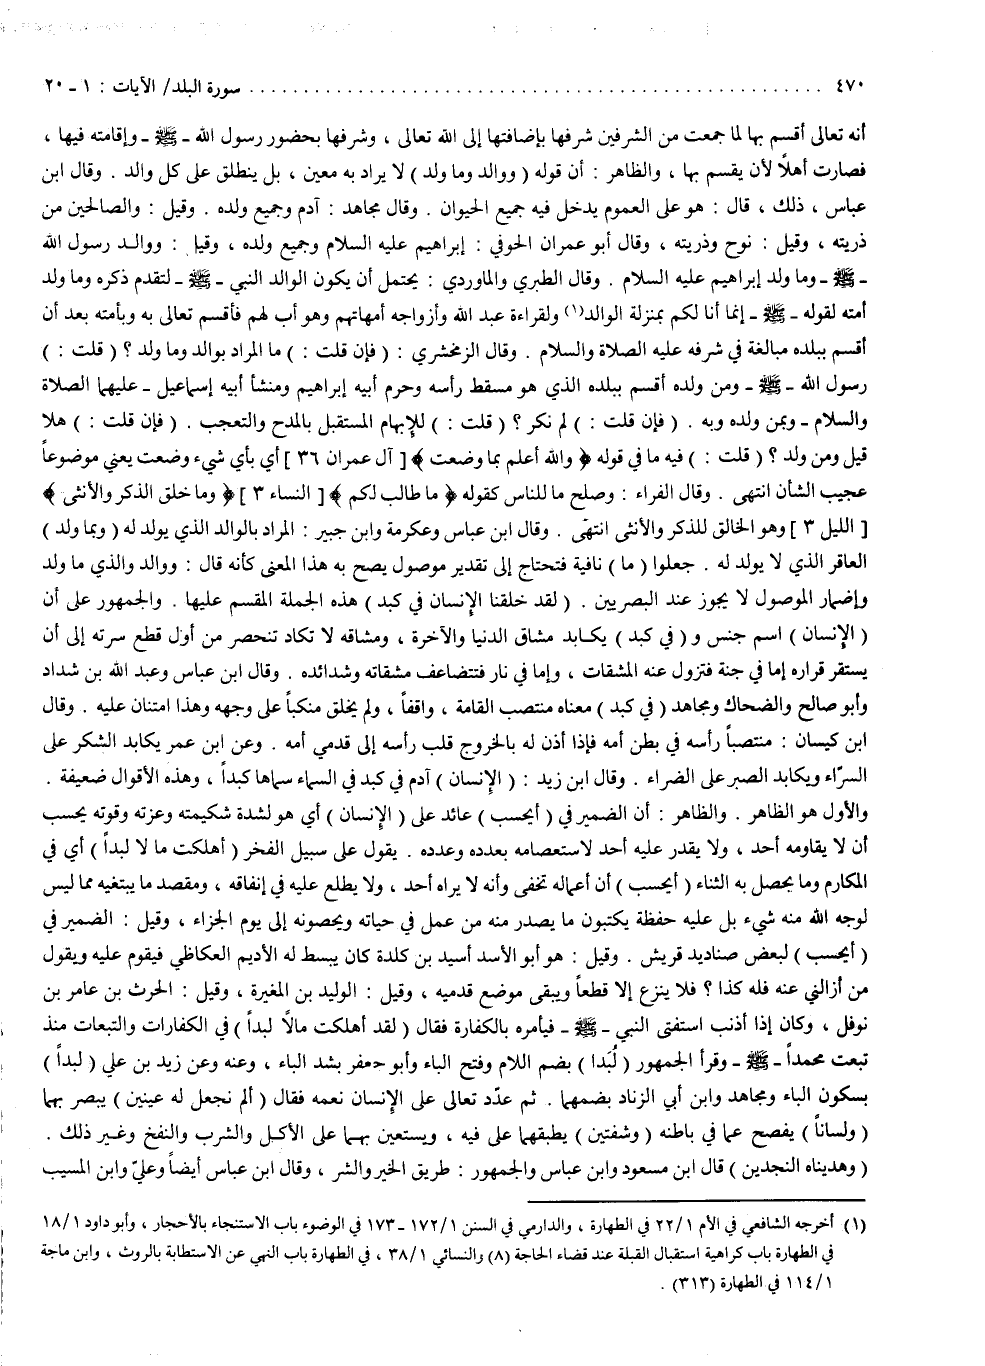 ٤٧٠ ..................................................... سورة البلد/ الآيات : ١ ـ ٢٠
أنه تعالى أقسم بها لما جمعت من الشرفين شرفها بإضافتها إلى الله تعالى ، وشرفها بحضور رسول الله ـ ﷺ ـ وإقامته فيها ،
فصارت أهلاً لأن يقسم بها ، والظاهر : أن قوله ( ووالد وما ولد ) لا يراد به معين ، بل ينطلق على كل والد . وقال ابن
عباس ، ذلك ، قال : هو على العموم يدخل فيه جميع الحيوان . وقال مجاهد : آدم وجميع ولده . وقيل : والصالحين من
ذريته ، وقيل : نوح وذريته ، وقال أبو عمران الحوفي : إبراهيم عليه السلام وجميع ولده ، وقيل : ووالد رسول الله
ـ ﷺ ـ وما ولد إبراهيم عليه السلام . وقال الطبري والماوردي : يحتمل أن يكون الوالد النبي ـ ﷺ ـ لتقدم ذكره وما ولد
أمته لقوله ـ ﷺ ـ إنما أنا لكم بمنزلة الوالد(١) ولقراءة عبد الله وأزواجه أمهاتهم وهو أب لهم فأقسم تعالى به وبأمته بعد أن
أقسم ببلده مبالغة في شرفه عليه الصلاة والسلام . وقال الزمخشري : ( فإن قلت : ) ما المراد بوالد وما ولد ؟ ( قلت : )
رسول الله ـ ﷺ ـ ومن ولده أقسم ببلده الذي هو مسقط رأسه وحرم أبيه إبراهيم ومنشأ أبيه إسماعيل ـ عليهما الصلاة
والسلام ـ وبمن ولده وبه . ( فإن قلت : ) لم نكر ؟ ( قلت : ) للإبهام المستقبل بالمدح والتعجب . ( فإن قلت : ) هلا
قيل ومن ولد ؟ ( قلت : ) فيه ما في قوله ﴿ والله أعلم بما وضعت ﴾ [ آل عمران ٣٦ ] أي بأي شيء وضعت يعني موضوعاً
عجيب الشأن انتهى . وقال الفراء : وصلح ما للناس كقوله ﴿ ما طالب لكم ﴾ [ النساء ٣ ] ﴿ وما خلق الذكر والأنثى ﴾
[ الليل ٣ ] وهو الخالق للذكر والأنثى انتهى . وقال ابن عباس وعكرمة وابن جبير : المراد بالوالد الذي يولد له ( وبما ولد )
العاقر الذي لا يولد له . جعلوا ( ما ) نافية فتحتاج إلى تقدير موصول يصح به هذا المعنى كأنه قال : ووالد والذي ما ولد
وإضمار الموصول لا يجوز عند البصريين . ( لقد خلقنا الإنسان في كبد ) هذه الجملة المقسم عليها . والجمهور على أن
( الإنسان ) اسم جنس و ( في كبد ) يكابد مشاق الدنيا والآخرة ، ومشاقه لا تكاد تنحصر من أول قطع سرته إلى أن
يستقر قراره إما في جنة فتزول عنه المشقات ، وإما في نار فتتضاعف مشقاته وشدائده . وقال ابن عباس وعبد الله بن شداد
وأبو صالح والضحاك ومجاهد ( في كبد ) معناه منتصب القامة ، واقفاً ، ولم يخلق منكباً على وجهه وهذا امتنان عليه . وقال
ابن كيسان : منتصباً رأسه في بطن أمه فإذا أذن له بالخروج قلب رأسه إلى قدمي أمه . وعن ابن عمر يكابد الشكر على
السرّاء ويكابد الصبر على الضراء . وقال ابن زيد : ( الإنسان ) آدم في كبد في السماء سماها كبداً ، وهذه الأقوال ضعيفة .
والأول هو الظاهر . والظاهر : أن الضمير في ( أيحسب ) عائد على ( الإنسان ) أي هو لشدة شكيمته وعزته وقوته يحسب
أن لا يقاومه أحد ، ولا يقدر عليه أحد لاستعصامه بعدده وعدده . يقول على سبيل الفخر ( أهلكت ما لا لبداً ) أي في
المكارم وما يحصل به الثناء ( أيحسب ) أن أعماله تخفى وأنه لا يراه أحد ، ولا يطلع عليه في إنفاقه ، ومقصد ما يبتغيه مما ليس
لوجه الله منه شيء بل عليه حفظة يكتبون ما يصدر منه من عمل في حياته ويحصونه إلى يوم الجزاء ، وقيل : الضمير في
( أيحسب ) لبعض صناديد قريش . وقيل : هو أبو الأسد أسيد بن كلدة كان يبسط له الأديم العكاظي فيقوم عليه ويقول
من أزالني عنه فله كذا ؟ فلا ينزع إلا قطعاً ويبقى موضع قدميه ، وقيل : الوليد بن المغيرة ، وقيل : الحرث بن عامر بن
نوفل ، وكان إذا أذنب استفتى النبي ـ ﷺ ـ فيأمره بالكفارة فقال ( لقد أهلكت مالاً لبداً ) في الكفارات والتبعات منذ
تبعت محمداً ـ ﷺ ـ وقرأ الجمهور ( لُبَدا ) بضم اللام وفتح الباء وأبو جعفر بشد الباء ، وعنه وعن زيد بن علي ( لبداً )
بسكون الباء ومجاهد وابن أبي الزناد بضمهما . ثم عدّد تعالى على الإنسان نعمه فقال ( ألم نجعل له عينين ) يبصر بهما
( ولساناً ) يفصح عما في باطنه ( وشفتين ) يطبقهما على فيه ، ويستعين بهما على الأكل والشرب والنفخ وغير ذلك .
( وهديناه النجدين ) قال ابن مسعود وابن عباس والجمهور : طريق الخير والشر ، وقال ابن عباس أيضاً وعليّ وابن المسيب
(١) أخرجه الشافعي في الأم ٢٢/١ في الطهارة ، والدارمي في السنن ١٧٢/١ ـ ١٧٣ في الوضوء باب الاستنجاء بالأحجار ، وأبو داود ١٨/١
في الطهارة باب كراهية استقبال القبلة عند قضاء الحاجة (٨) والنسائي ٣٨/١ ، في الطهارة باب النهي عن الاستطابة بالروث ، وابن ماجة
١١٤/١ في الطهارة (٣١٣) .